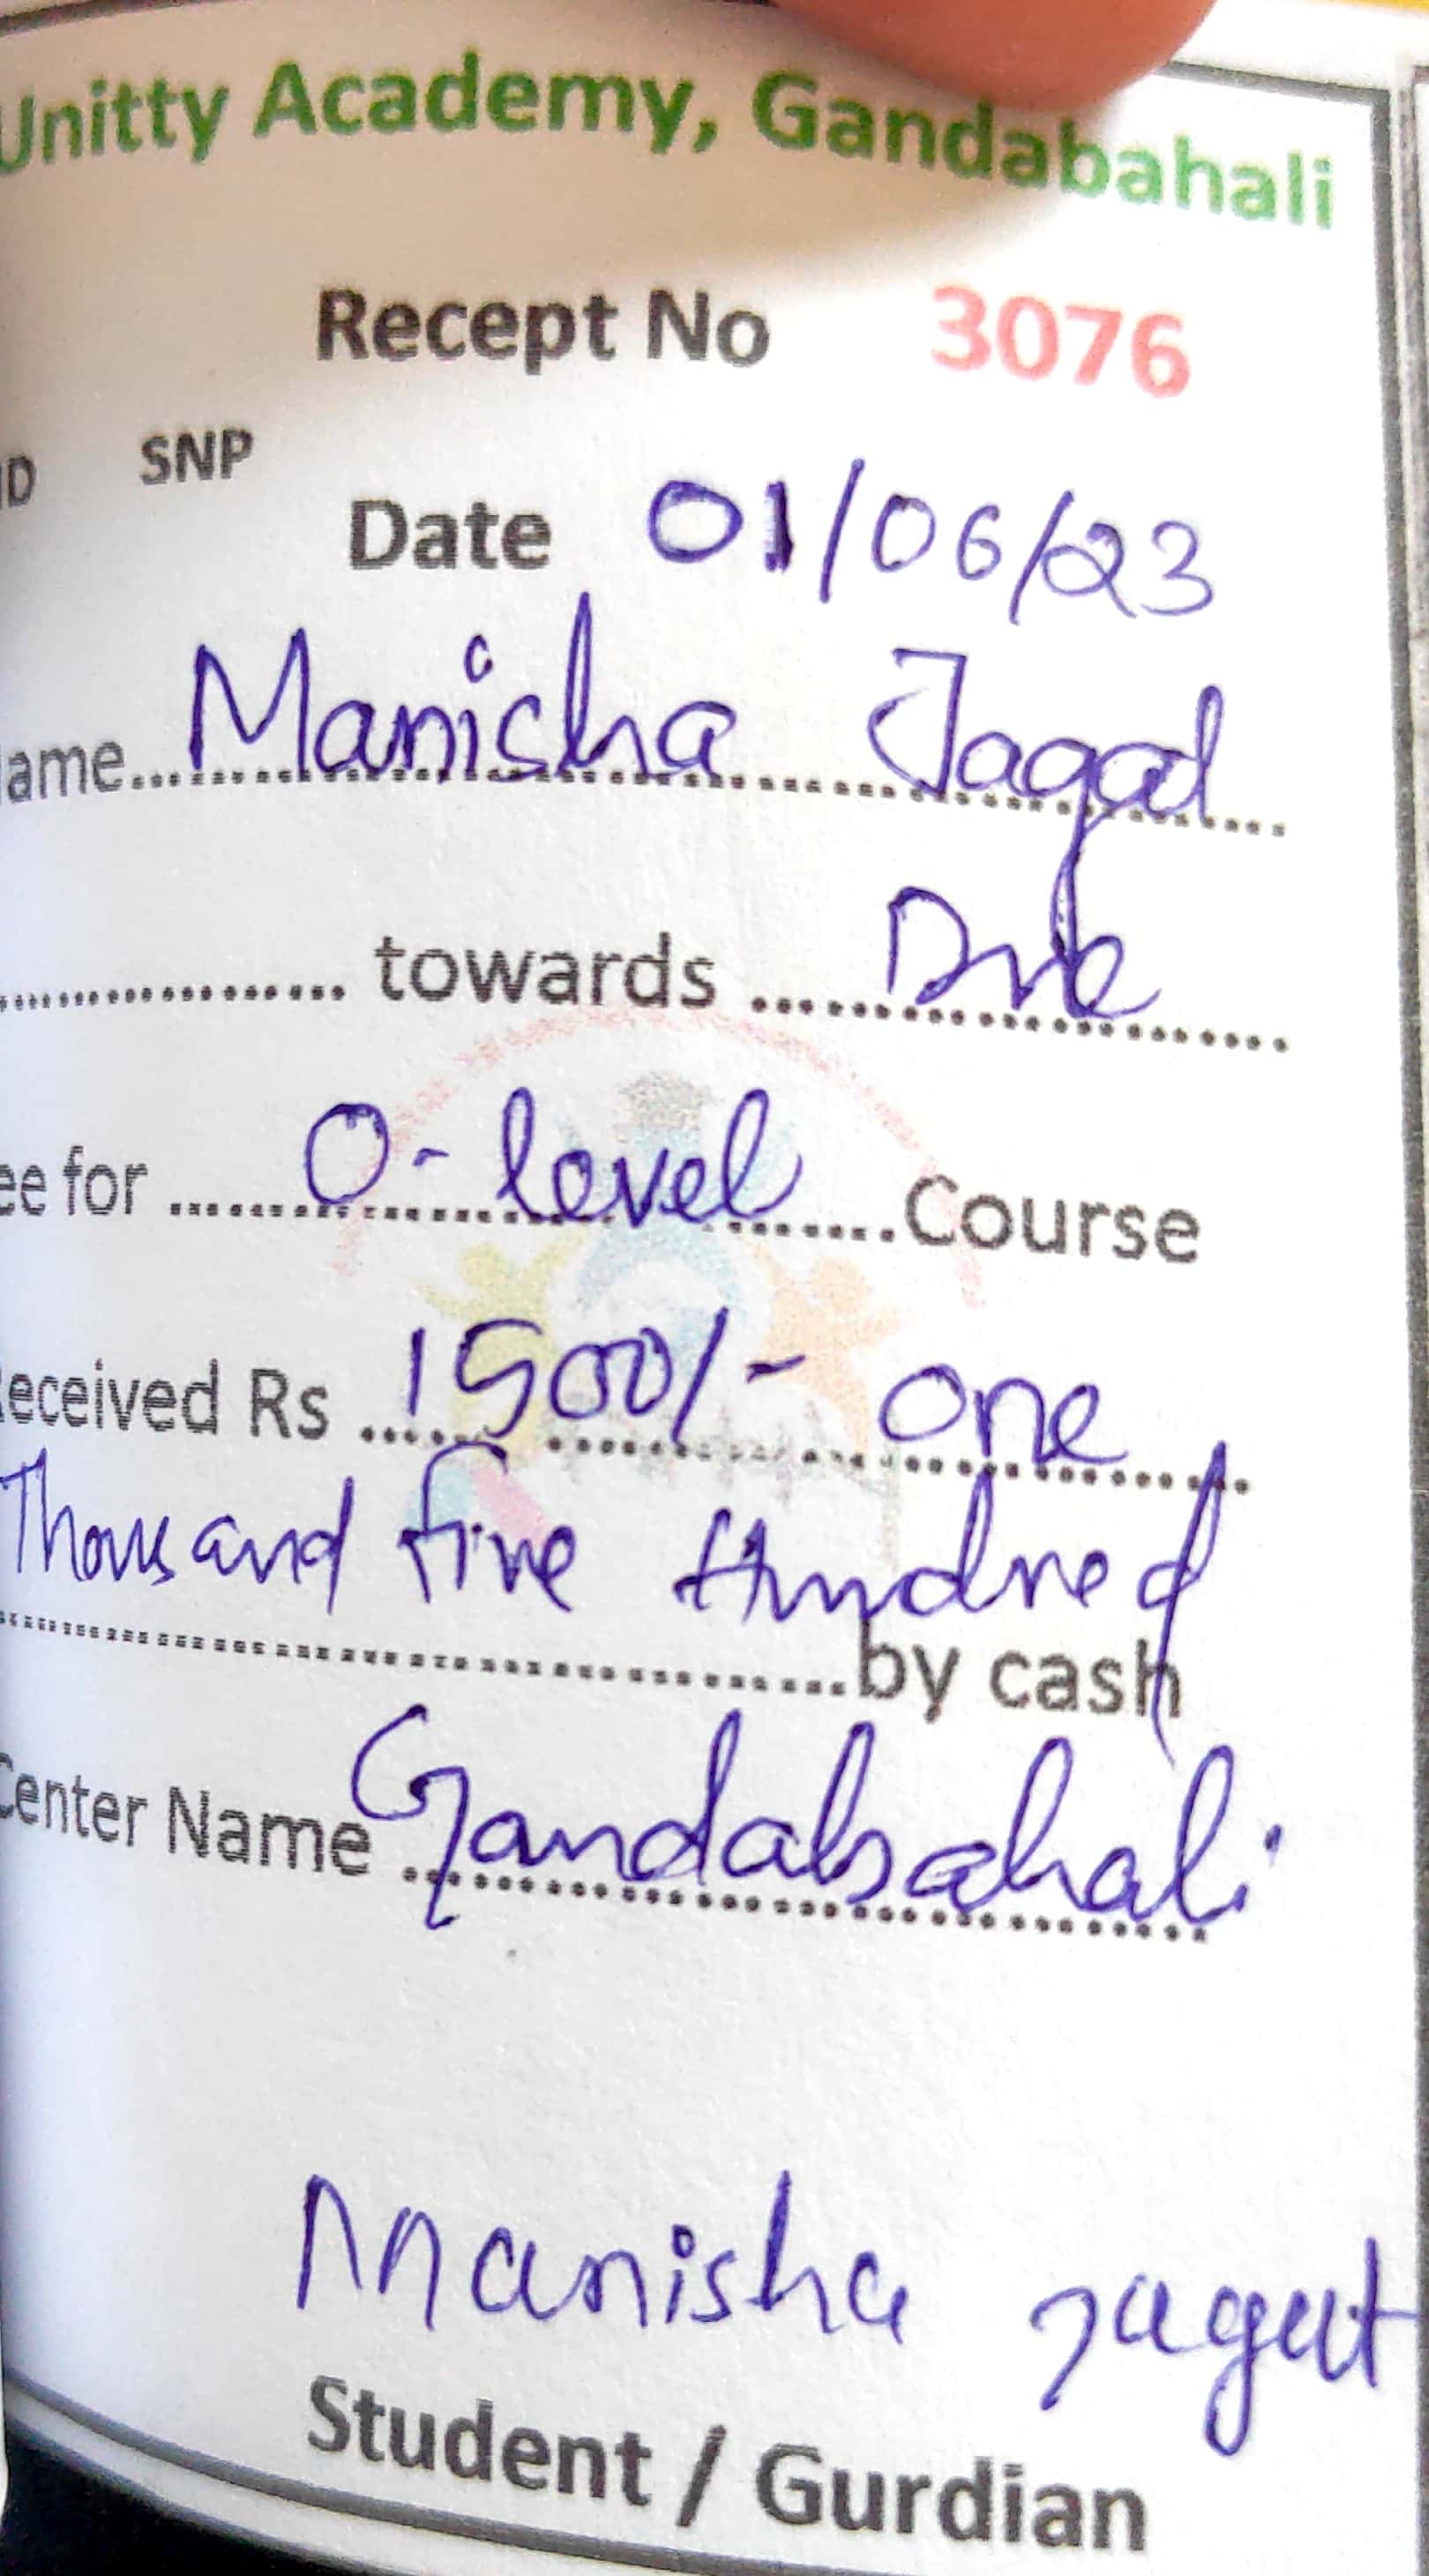 Unitty Academy, Gandabahali
Recept No 3076
ID SNP
Date 01/06/23
ame... Manisha Jagad
.................. towards ... Due
ee for ... O-level ... Course
eceived Rs ... 1500/- one
Thousand five Hundred
.................. by cash
Center Name ... Gandabahali
Manisha Jagat
Student / Gurdian